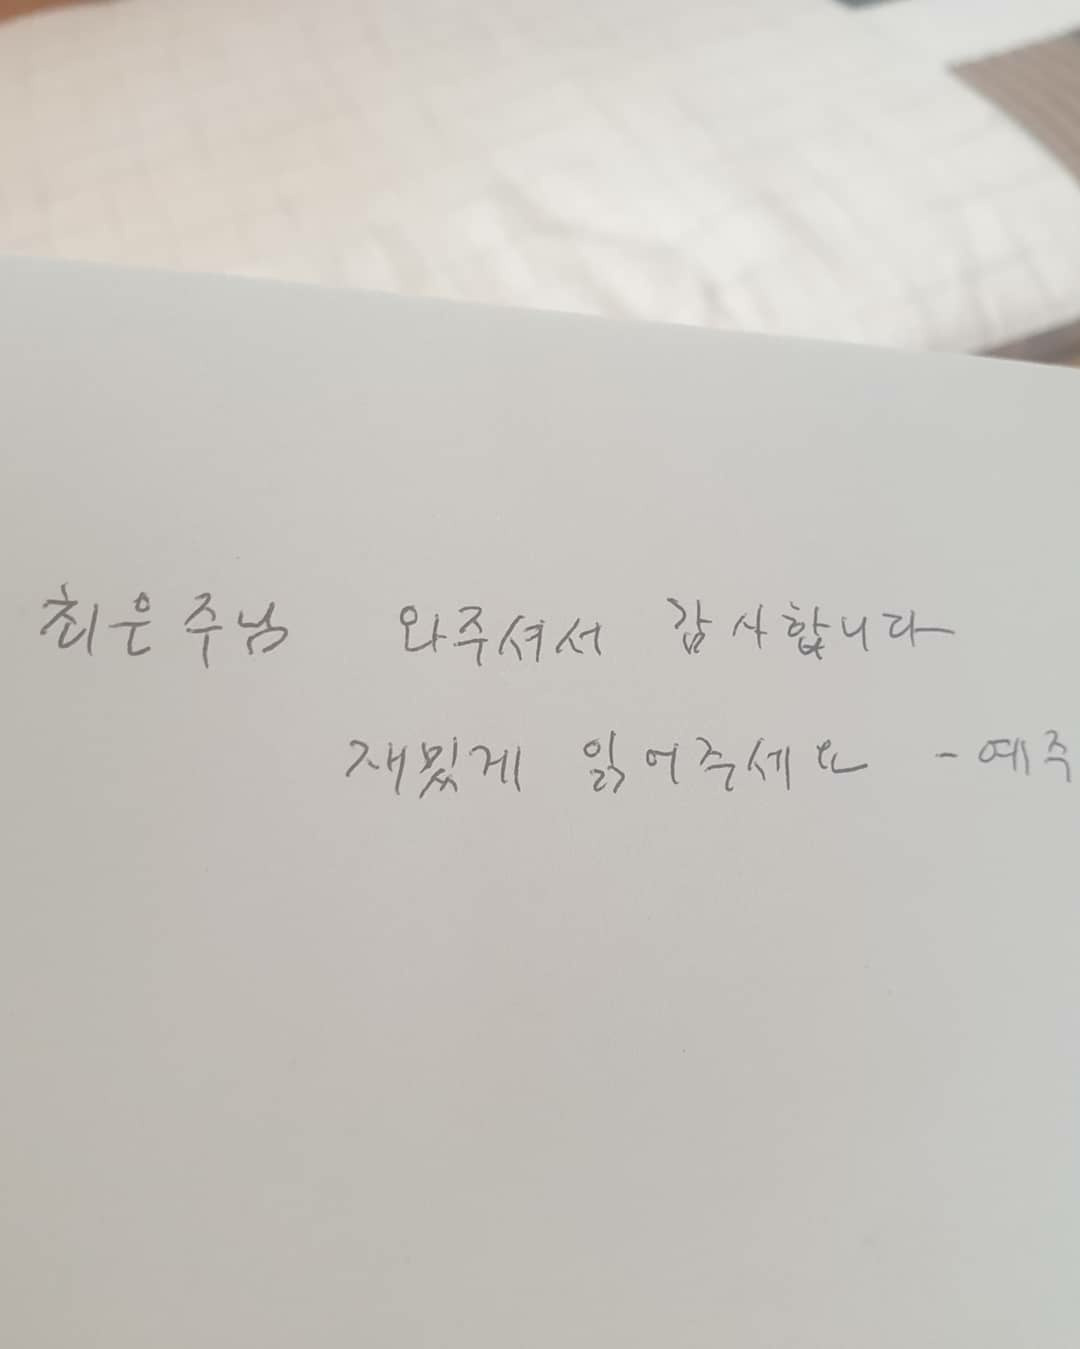 최은주님 와주셔서 감사합니다
재밌게 읽어주세요 - 예주